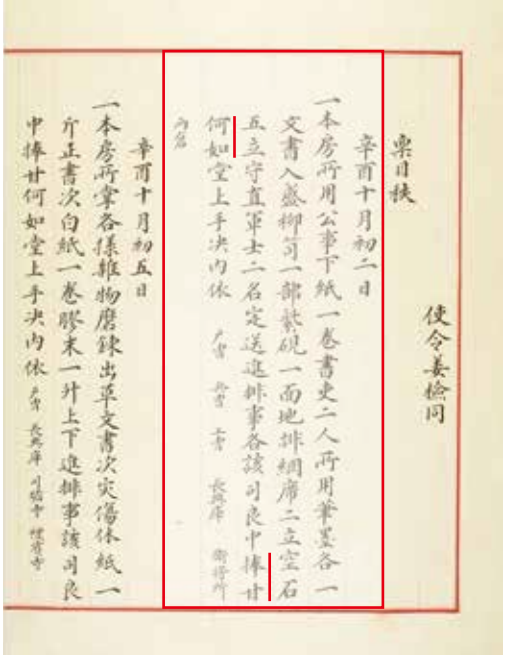 使令姜同
稟目秩
辛酉十月初二日
一本房所用公事下紙一卷書吏二人所用筆墨各一
文書入盛柳笥一部紫硯一面地排網席二立空石
五立守直軍士二名定送進排事各該司良中捧甘
何如堂上手決內依 戶曹 兵曹 工曹 長興庫 衛將所
辛酉十月初五日
一本房所掌各樣雜物磨鍊出草文書次災傷休紙一
斤正書次白紙一卷膠末一升上下進排事該司良
中捧甘何如堂上手決內依 戶曹 長興庫 司䆃寺 禮賓寺